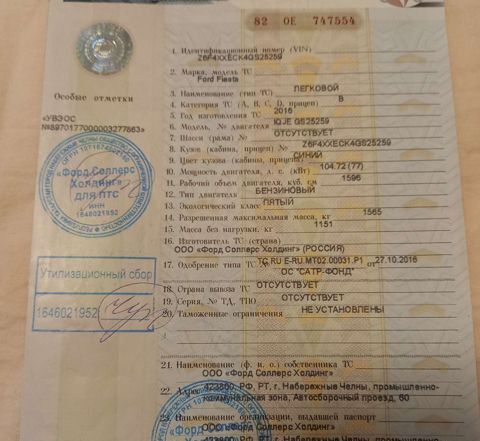 82 ОЕ 747554
1. Идентификационный номер (VIN)
Z6F4XXECK4GS25259
2. Марка, модель ТС
Ford Fiesta
3. Наименование (тип ТС) ЛЕГКОВОЙ
4. Категория ТС (А, В, С, D, прицеп) В
5. Год изготовления ТС 2016
6. Модель, № двигателя IQJE GS25259
7. Шасси (рама) № ОТСУТСТВУЕТ
8. Кузов (кабина, прицеп) № Z6F4XXECK4GS25259
9. Цвет кузова (кабины, прицепа) СИНИЙ
10. Мощность двигателя, л. с. (кВт) 104.72 (77)
11. Рабочий объем двигателя, куб. см 1596
12. Тип двигателя БЕНЗИНОВЫЙ
13. Экологический класс ПЯТЫЙ
14. Разрешенная максимальная масса, кг 1565
15. Масса без нагрузки, кг 1151
16. Изготовитель ТС (страна)
ООО «Форд Соллерс Холдинг» (РОССИЯ)
17. Одобрение типа ТС № ТС RU E-RU.MT02.00031.P1 от 27.10.2016
ОС "САТР-ФОНД"
18. Страна вывоза ТС ОТСУТСТВУЕТ
19. Серия, № ТД, ТПО ОТСУТСТВУЕТ
20. Таможенные ограничения НЕ УСТАНОВЛЕНЫ
21. Наименование (ф. и. о.) собственника ТС
ООО «Форд Соллерс Холдинг»
22. Адрес 423800, РФ, РТ, г. Набережные Челны, промышленно-
коммунальная зона, Автосборочный проезд, 60
23. Наименование организации, выдавшей паспорт
ООО «Форд Соллерс Холдинг»
Особые отметки
«УВЭОС
№897017700003277863»
«Форд Соллерс
Холдинг»
для ПТС
ИНН
1646021952
Утилизационный сбор
1646021952